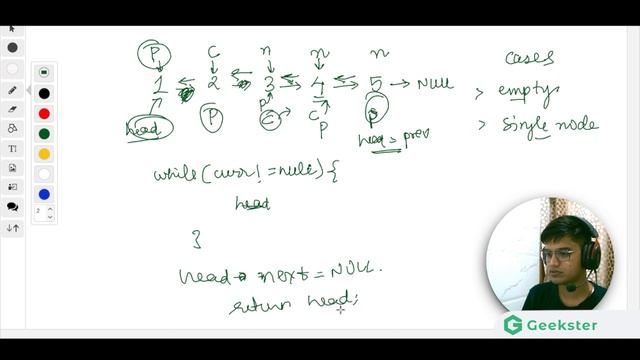 P C n n n
cases
1 2 3 4 5 → NULL
> empty
P
head P C C P P
> single node
head = prev
while (curr != null) {
head
}
head • next = NULL.
return head;
2
Geekster